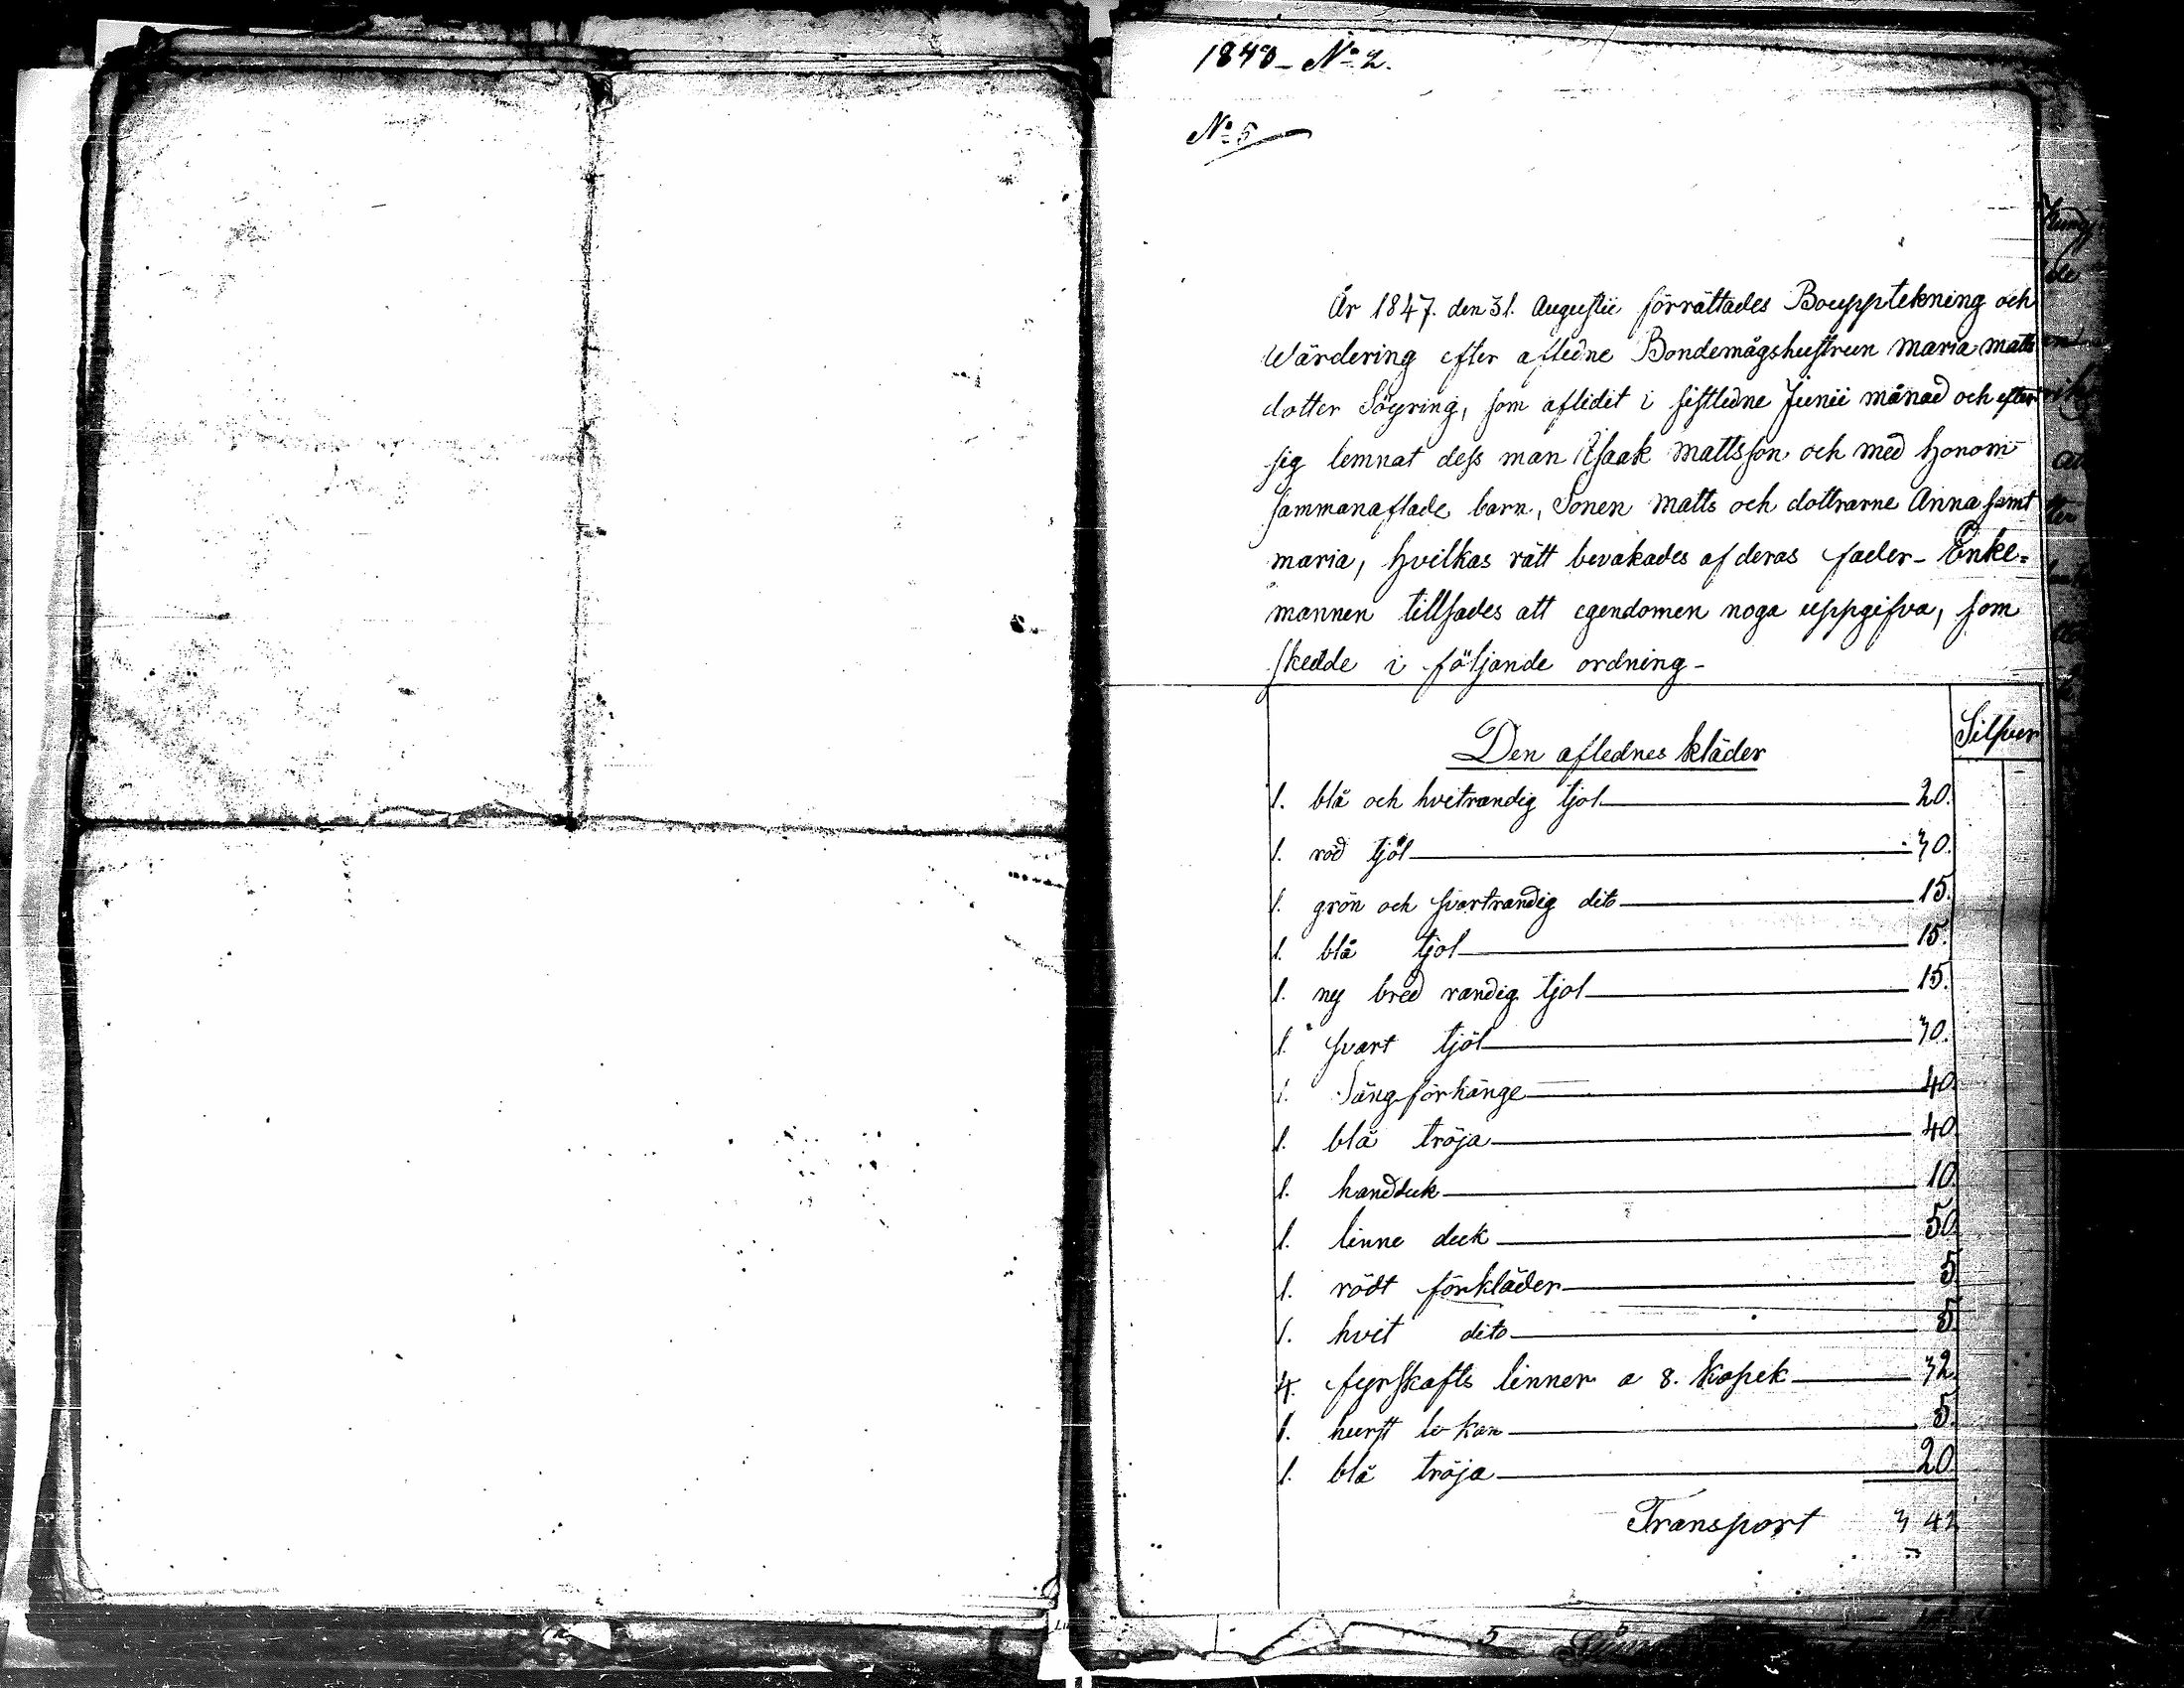 1848 - No 2.
No 5
År 1847. den 31. Augustii förrättades Boupptekning och
Wärdering efter aflidne Bondemågshustrun Maria Matts
dotter Söyring, som aflidit i sistledne Junii månad och efter
sig lemnat dess man Isaak Mattsson och med honom
sammanaflade barn, Sonen Matts och dottrarne Anna samt
Maria, hvilkas rätt bevakades af deras fader - Enke=
mannen tillsades att egendomen noga uppgifva, som
skedde i följande ordning -
Silfver
Den aflednes kläder
1. blå och hvitrandig tjol 20.
1. röd tjol 30.
1. grön och svartrandig dito 15.
1. blå tjol 15.
1. ny bred randig tjol 15.
1. svart tjöl 30.
1. Sängförhänge 40
1. blå tröja 40
1. handduk 10
1. linne duk 50
1. rödt förkläder 5
1. hvit dito 5
4. fyrskafts linner a 8. Kopek 32
1. 5.
1. blå tröja 20
Transport 3 42